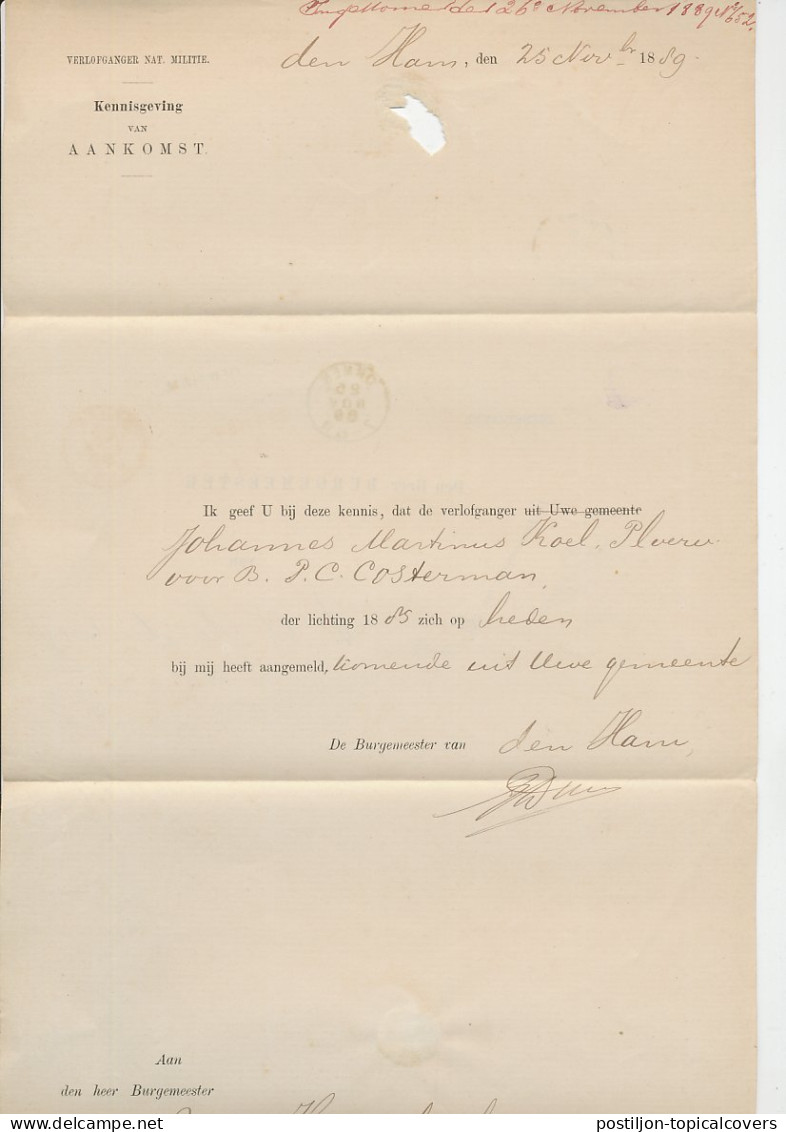 Ingekomen den 26e November 1889 No 652.
VERLOFGANGER NAT. MILITIE.
den Ham, den 25 Novbr 1889.
Kennisgeving
VAN
AANKOMST.
Ik geef U bij deze kennis, dat de verlofganger uit Uwe gemeente
Johannes Martinus Koel,
voor B. P. C. Costerman,
der lichting 1885 zich op heden
bij mij heeft aangemeld, komende uit Uwe gemeente
De Burgemeester van den Ham,
Aan
den heer Burgemeester
postiljon-topicalcovers